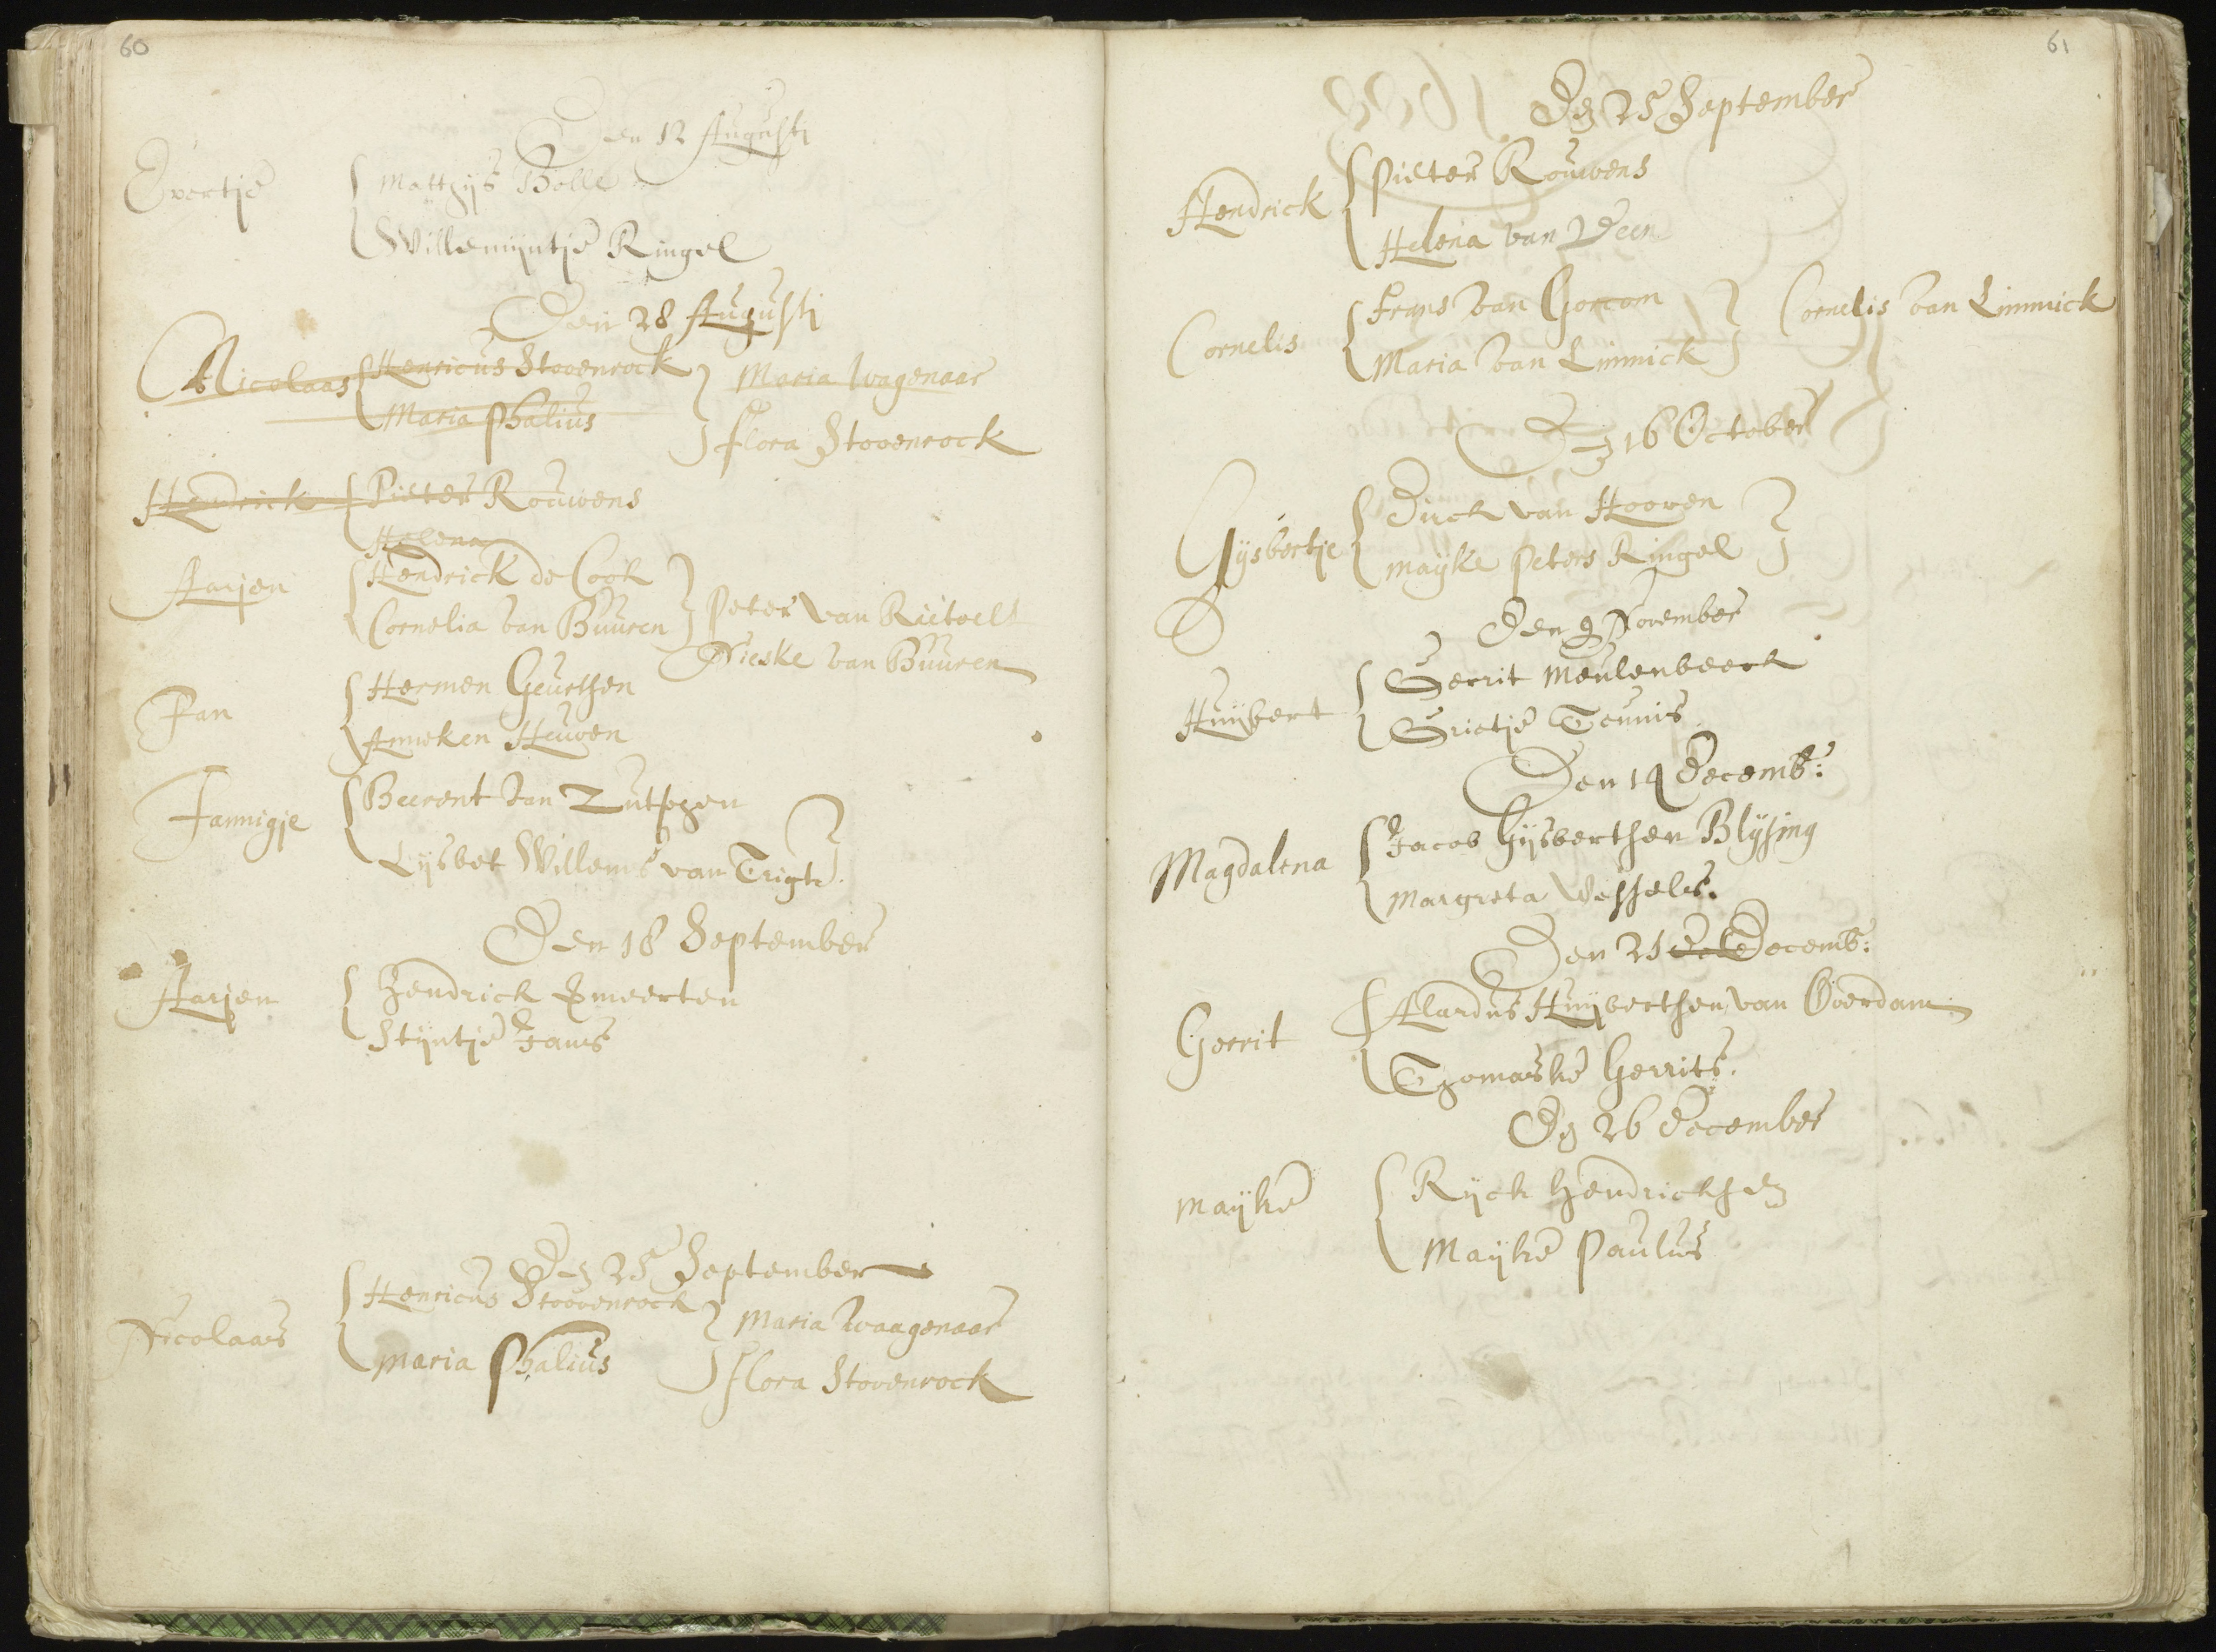 60
Den 12 Augusti
Evertje Matthijs Bolle
Willemijntje Ringel
Den 28 Augusti
Nicolaas Henricus Stovenrock Maria Wagenaar
Maria Phalius flora Stovenrock
Hendrick Pieter Rouwens
Helena
Aarjen Hendrick de Cook
Cornelia van Buuren Peter van Rietvelt
Nieske van Buuren
Jan Hermen Geurtsen
Anneken Heuven
Jannigje Beerent van Zutphen
Lijsbet Willems van Trigt.
Den 18 September
Aarjen Hendrick Smeerten
Stijntje Jans
Den 25 September
Nicolaas Henricus Stoovenrock Maria Waagenaar
Maria Phalius flora Stovenrock
61
Den 25 September
Hendrick Pieter Rouwens
Helena van Veen
Cornelis Frans van Gorcom Cornelis van Limmick
Maria van Limmick
Den 16 October
Gijsbertje Dirck van Hooven
Mayke Peters Ringel
Den 9 November
Huijbert Gerrit Meulenbeeck
Grietje Teunis
Den 14 Decemb:
Magdalena Jacob Gijsbertsen Blijsing
Margreta Wessels.
Den 21 Decemb:
Gerrit Alardus Huijbertsen van Overdam
Thomaske Gerrits.
Den 26 December
Mayke Rijck Hendricksen
Mayke Paulus